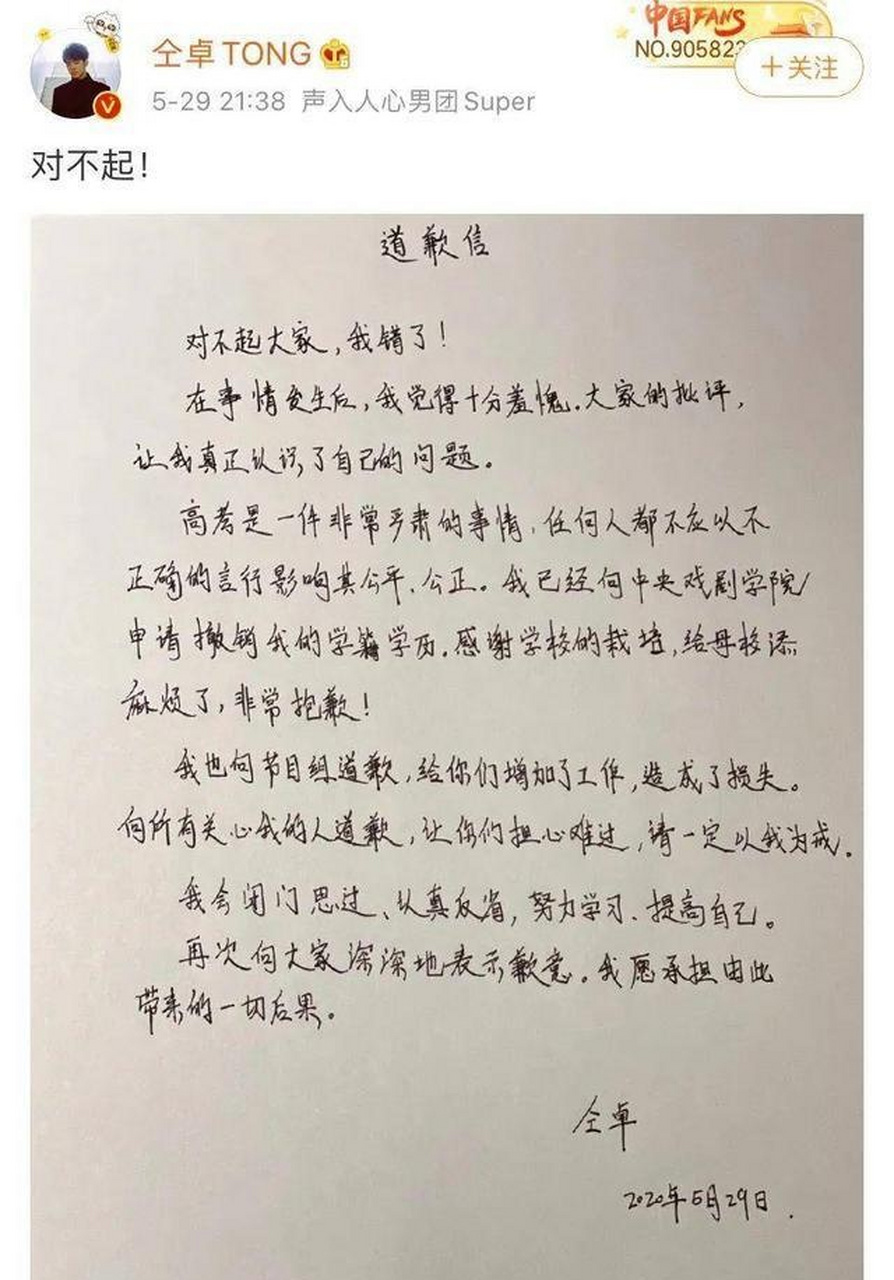 中国FANS
NO.905823
仝卓TONG
+关注
5-29 21:38 声入人心男团Super
对不起!
道歉信
对不起大家,我错了!
在事情发生后,我觉得十分羞愧.大家的批评,
让我真正认识了自己的问题。
高考是一件非常严肃的事情,任何人都不应以不
正确的言行影响其公平、公正。我已经向中央戏剧学院
申请撤销我的学籍学历.感谢学校的栽培,给母校添
麻烦了,非常抱歉!
我也向节目组道歉,给你们增加了工作,造成了损失。
向所有关心我的人道歉,让你们担心难过,请一定以我为戒.
我会闭门思过、认真反省,努力学习、提高自己。
再次向大家深深地表示歉意。我愿承担由此
带来的一切后果。
仝卓
2020年5月29日.